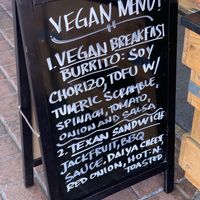 VEGAN MENU!
1. VEGAN BREAKFAST
BURRITO: SOY
CHORIZO, TOFU W/
TUMERIC SCRAMBLE,
SPINACH, TOMATO,
ONION AND SALSA
2. TEXAN SANDWICH
JACKFRUIT, BBQ
SAUCE, DAIYA CHEESE
RED ONION, HOT N'
TOASTED.